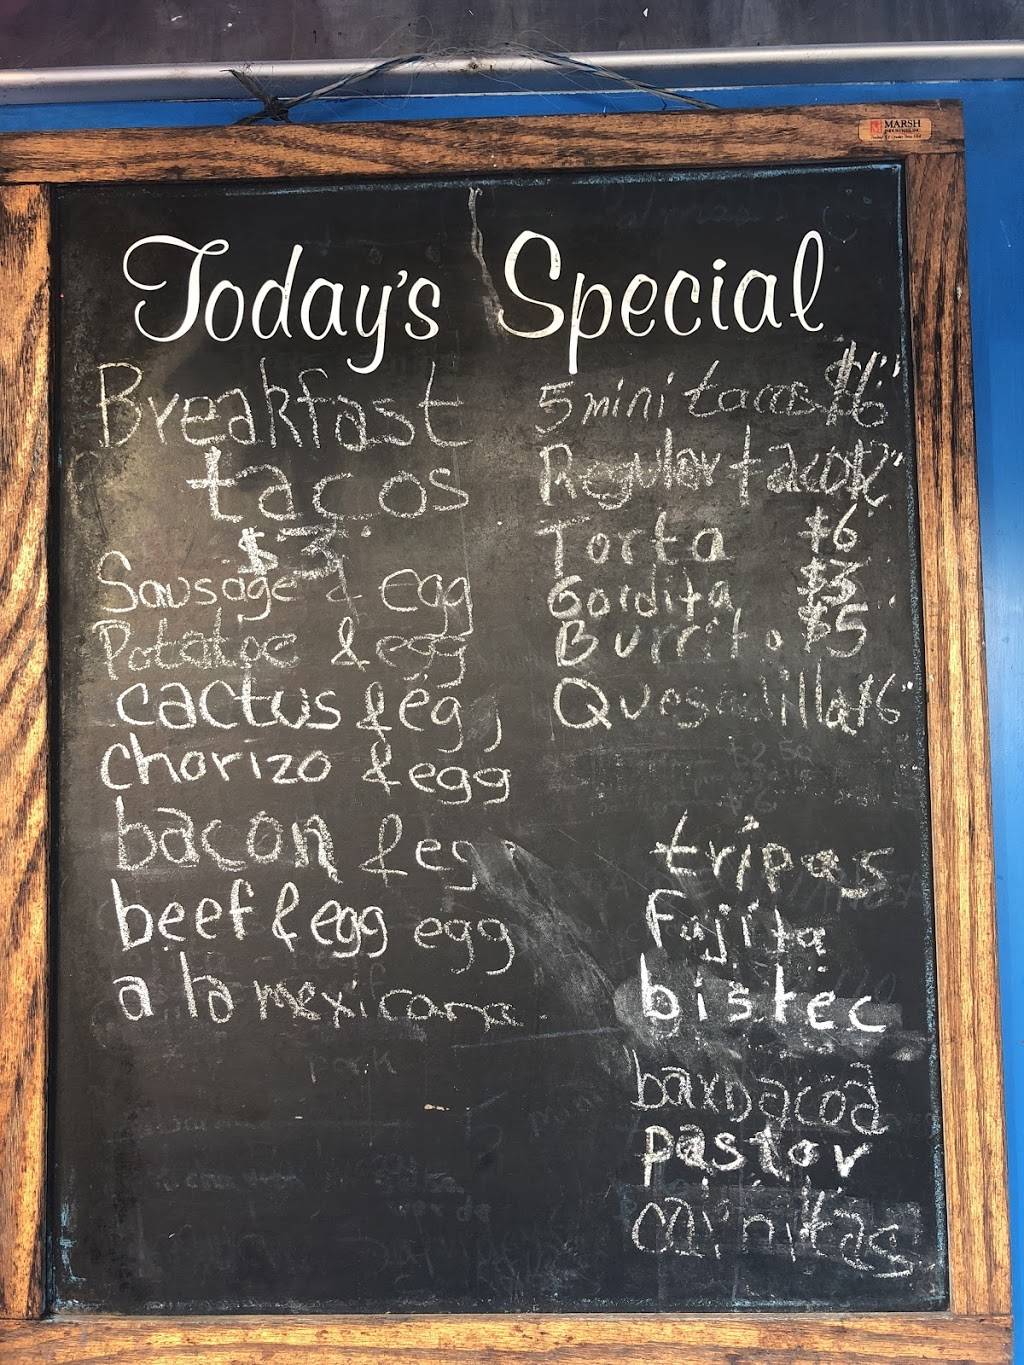 MARSH
Today's Special
Breakfast
tacos
$3
Sausage & egg
Potatoe & egg
cactus & eg
chorizo & egg
bacon & eg
beef & egg egg
a la mexicana
5 mini tacos $6
Regular taco $2
Torta $6
Gordita $3
Burrito $5
Quesadilla $6
$2.50
tripas
Fajita
bistec
barbacoa
pastor
carnitas
pork